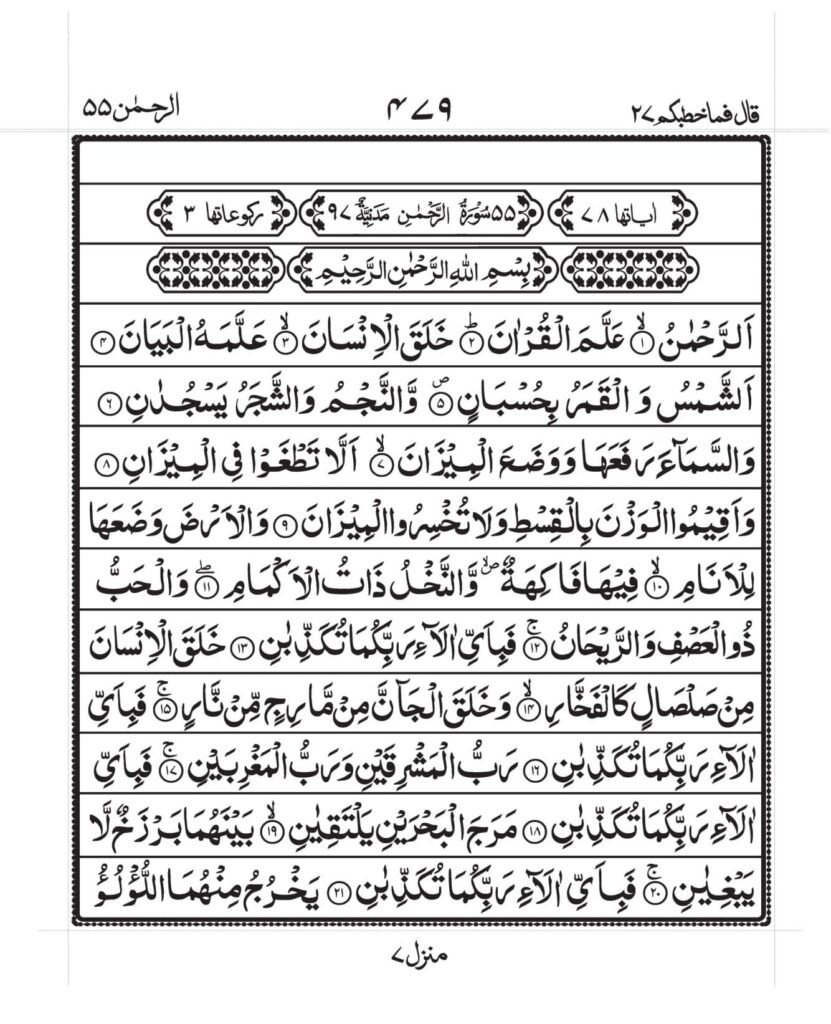 قال فما خطبكم ٢٧ ٤٧٩ الرحمٰن ٥٥
اٰياتها ٧٨ ٥٥ سُوْرَةُ الرَّحْمٰنِ مَدَنِيَّةٌ ٩٧ ركوعاتها ٣
بِسْمِ اللّٰهِ الرَّحْمٰنِ الرَّحِيْمِ
اَلرَّحْمٰنُ ۙ﴿١﴾ عَلَّمَ الْقُرْاٰنَ ؕ﴿٢﴾ خَلَقَ الْاِنْسَانَ ۙ﴿٣﴾ عَلَّمَهُ الْبَيَانَ ﴿٤﴾
اَلشَّمْسُ وَ الْقَمَرُ بِحُسْبَانٍ ۪﴿٥﴾ وَّالنَّجْمُ وَالشَّجَرُ يَسْجُدٰنِ ﴿٦﴾
وَالسَّمَآءَ رَفَعَهَا وَوَضَعَ الْمِيْزَانَ ۙ﴿٧﴾ اَلَّا تَطْغَوْا فِى الْمِيْزَانِ ﴿٨﴾
وَاَقِيْمُوا الْوَزْنَ بِالْقِسْطِ وَلَا تُخْسِرُوا الْمِيْزَانَ ﴿٩﴾ وَالْاَرْضَ وَضَعَهَا
لِلْاَنَامِ ۙ﴿١٠﴾ فِيْهَا فَاكِهَةٌ ۪ۙ وَّالنَّخْلُ ذَاتُ الْاَكْمَامِ ۖ﴿١١﴾ وَالْحَبُّ
ذُو الْعَصْفِ وَالرَّيْحَانُ ۚ﴿١٢﴾ فَبِاَىِّ اٰلَآءِ رَبِّكُمَا تُكَذِّبٰنِ ﴿١٣﴾ خَلَقَ الْاِنْسَانَ
مِنْ صَلْصَالٍ كَالْفَخَّارِ ۙ﴿١٤﴾ وَخَلَقَ الْجَآنَّ مِنْ مَّارِجٍ مِّنْ نَّارٍ ۚ﴿١٥﴾ فَبِاَىِّ
اٰلَآءِ رَبِّكُمَا تُكَذِّبٰنِ ﴿١٦﴾ رَبُّ الْمَشْرِقَيْنِ وَرَبُّ الْمَغْرِبَيْنِ ۚ﴿١٧﴾ فَبِاَىِّ
اٰلَآءِ رَبِّكُمَا تُكَذِّبٰنِ ﴿١٨﴾ مَرَجَ الْبَحْرَيْنِ يَلْتَقِيٰنِ ۙ﴿١٩﴾ بَيْنَهُمَا بَرْزَخٌ لَّا
يَبْغِيٰنِ ۚ﴿٢٠﴾ فَبِاَىِّ اٰلَآءِ رَبِّكُمَا تُكَذِّبٰنِ ﴿٢١﴾ يَخْرُجُ مِنْهُمَا اللُّؤْلُؤُ
منزل ٧